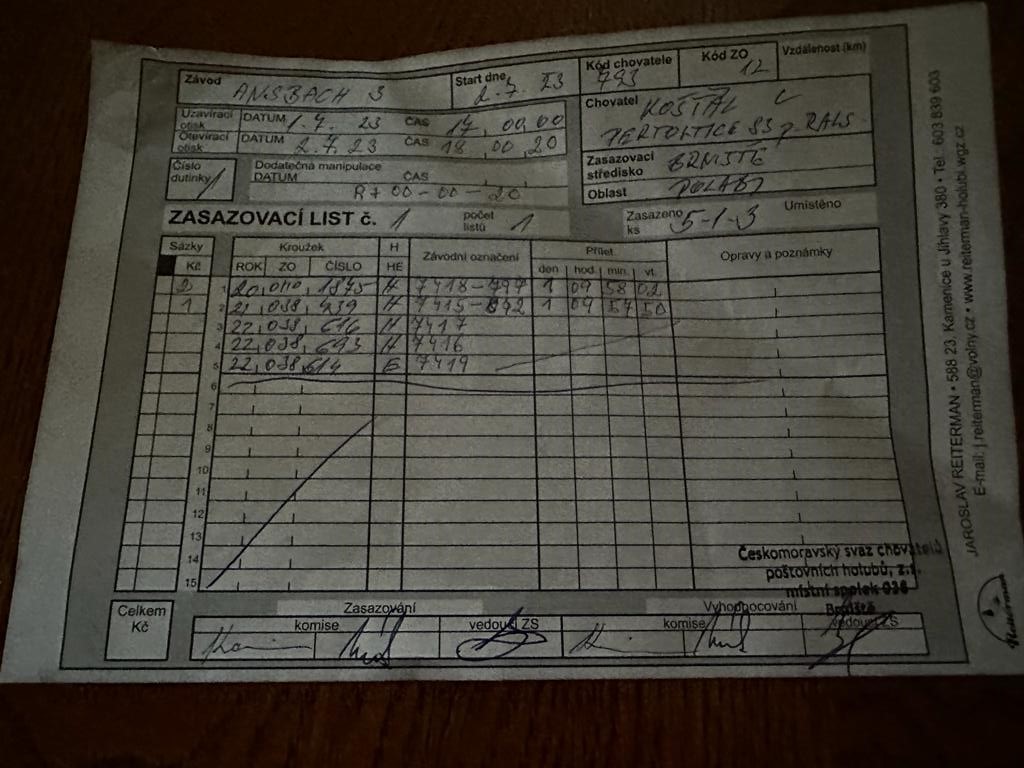 Závod ANSBACH 3 Start dne 2.7. 23 Kód chovatele 793 Kód ZO 12 Vzdálenost (km)
Uzavírací otisk DATUM 1.7. 23 ČAS 17, 00,00
Otevírací otisk DATUM 2.7.23 ČAS 18,00,20
Chovatel KOŠŤÁL
Číslo dutinky 1 Dodatečná manipulace
DATUM ČAS
R+ 00-00-20
Zasazovací středisko BRNIŠTĚ
Oblast POLABÍ
ZASAZOVACÍ LIST č. 1 počet listů 1 Zasazeno ks 5-1-3 Umístěno
Sázky Kroužek H Závodní označení Přílet Opravy a poznámky
Kč ROK ZO ČÍSLO HE den hod min. vt.
2 1 20, 1875 H 7418-797 1 09 58 02
1 2 21,038, 439 H 7415-892 1 09 57 50
3 22,038, 616 H 7417
4 22,038, 693 H 7416
5 22,038, 614 7419
6
7
8
9
10
11
12
13
14
15
Českomoravský svaz chovatelů
poštovních holubů, z.s.
místní spolek 036
Brniště
Celkem Kč Zasazování Vyhodnocování
komise vedoucí ZS komise vedoucí ZS
JAROSLAV REITERMAN • 588 23, Kamenice u Jihlavy 380 • Tel.: 603 839 603
E-mail: j.reiterman@volny.cz • www.reiterman-holubi.wgz.cz
Reiterman